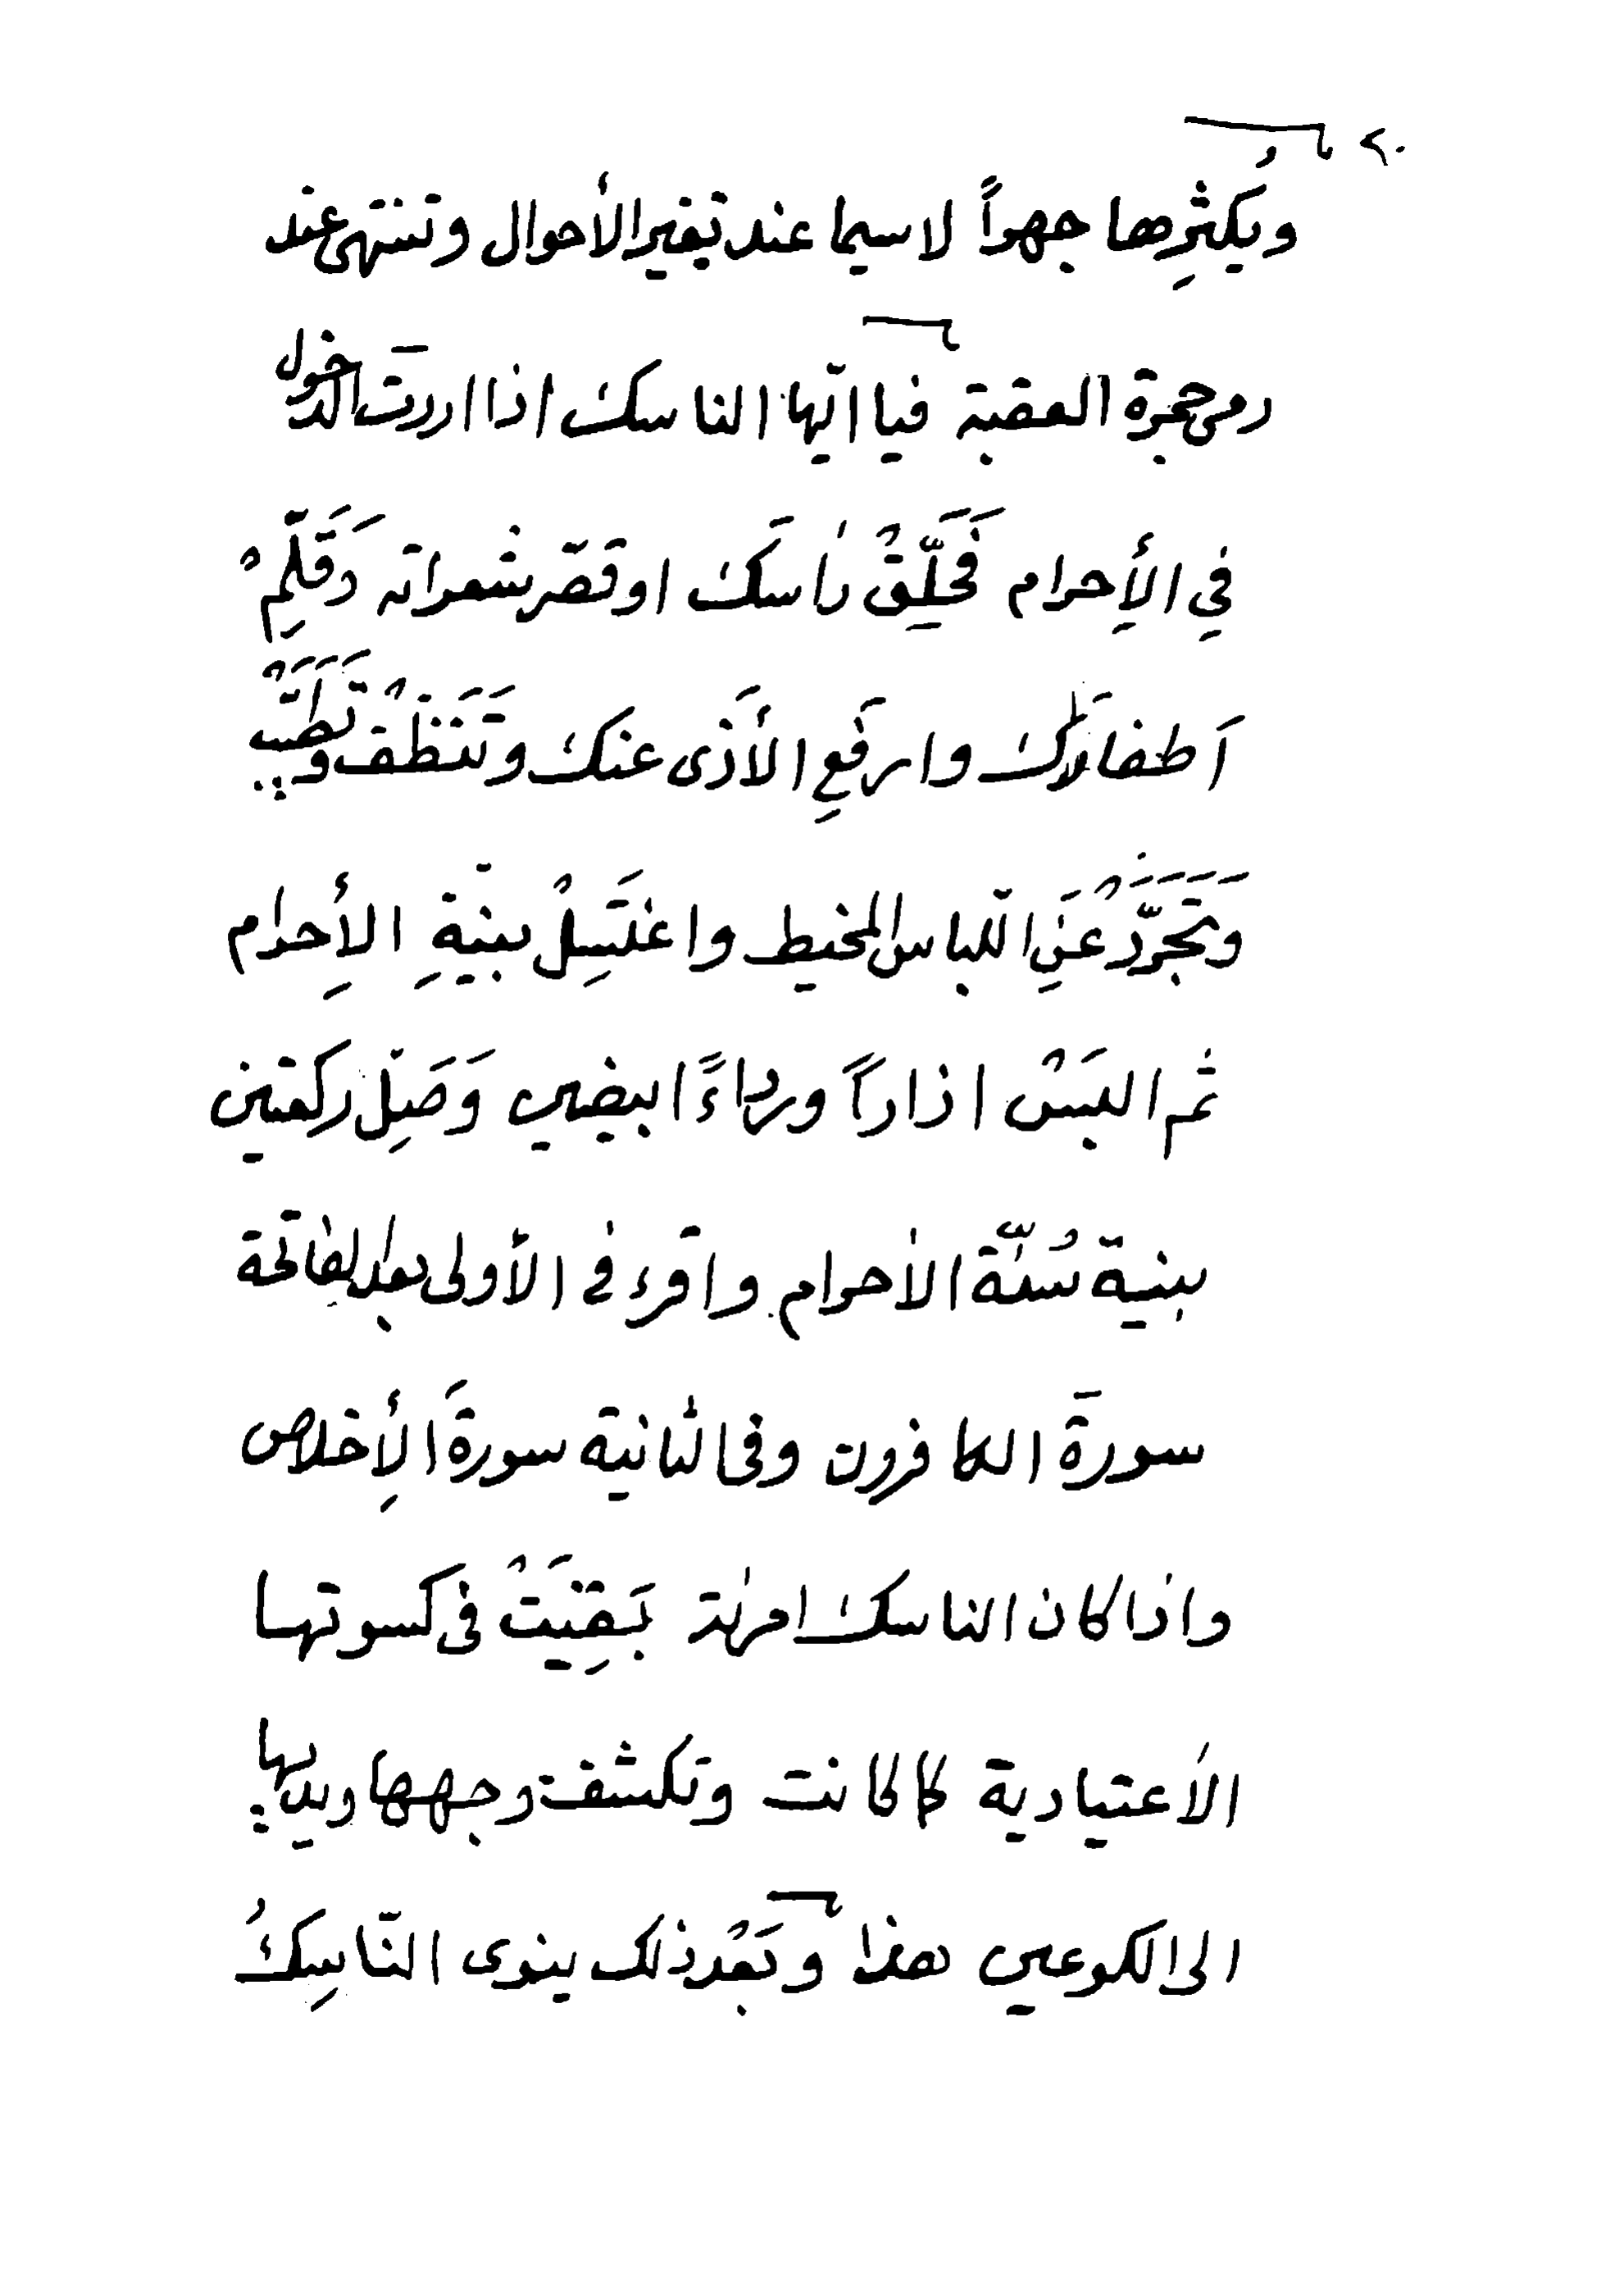 ٢٠
ويُكثرِها جهراً لاسيما عند تغير الأحوال وتنتهى عند
رمى جمرة العقبة فيا ايّها الناسك اذا اردتَ الدخول
في الأِحرام فَحَلِّقْ رأسَكَ او قصّر شعراته وَقَلِّمْ
اَظفارَكَ وارفَعِ الأَذى عنك وتَنَظَّفْ وتَطَيَّبْ
وَتَجَرَّدْ عَنِ اللّباس المخيط واغتَسِلْ بنيّةِ الأِحرام
ثم البَسْ اذاراً ورداءً ابيضين وَصَلِّ ركعتين
بنية سُنّة الأحرام واقرء في الأولى بعد الفاتحة
سورةَ الكافرون وفى الثانية سورةَ الأِخلاص
واذا كان الناسك امرئة بَقِيَتْ فى كسوتها
الأعتيادية كما كانت وتكشف وجهها ويديها
الى الكوعين هذا وبَعْد ذلك ينوى النّاسِكُ